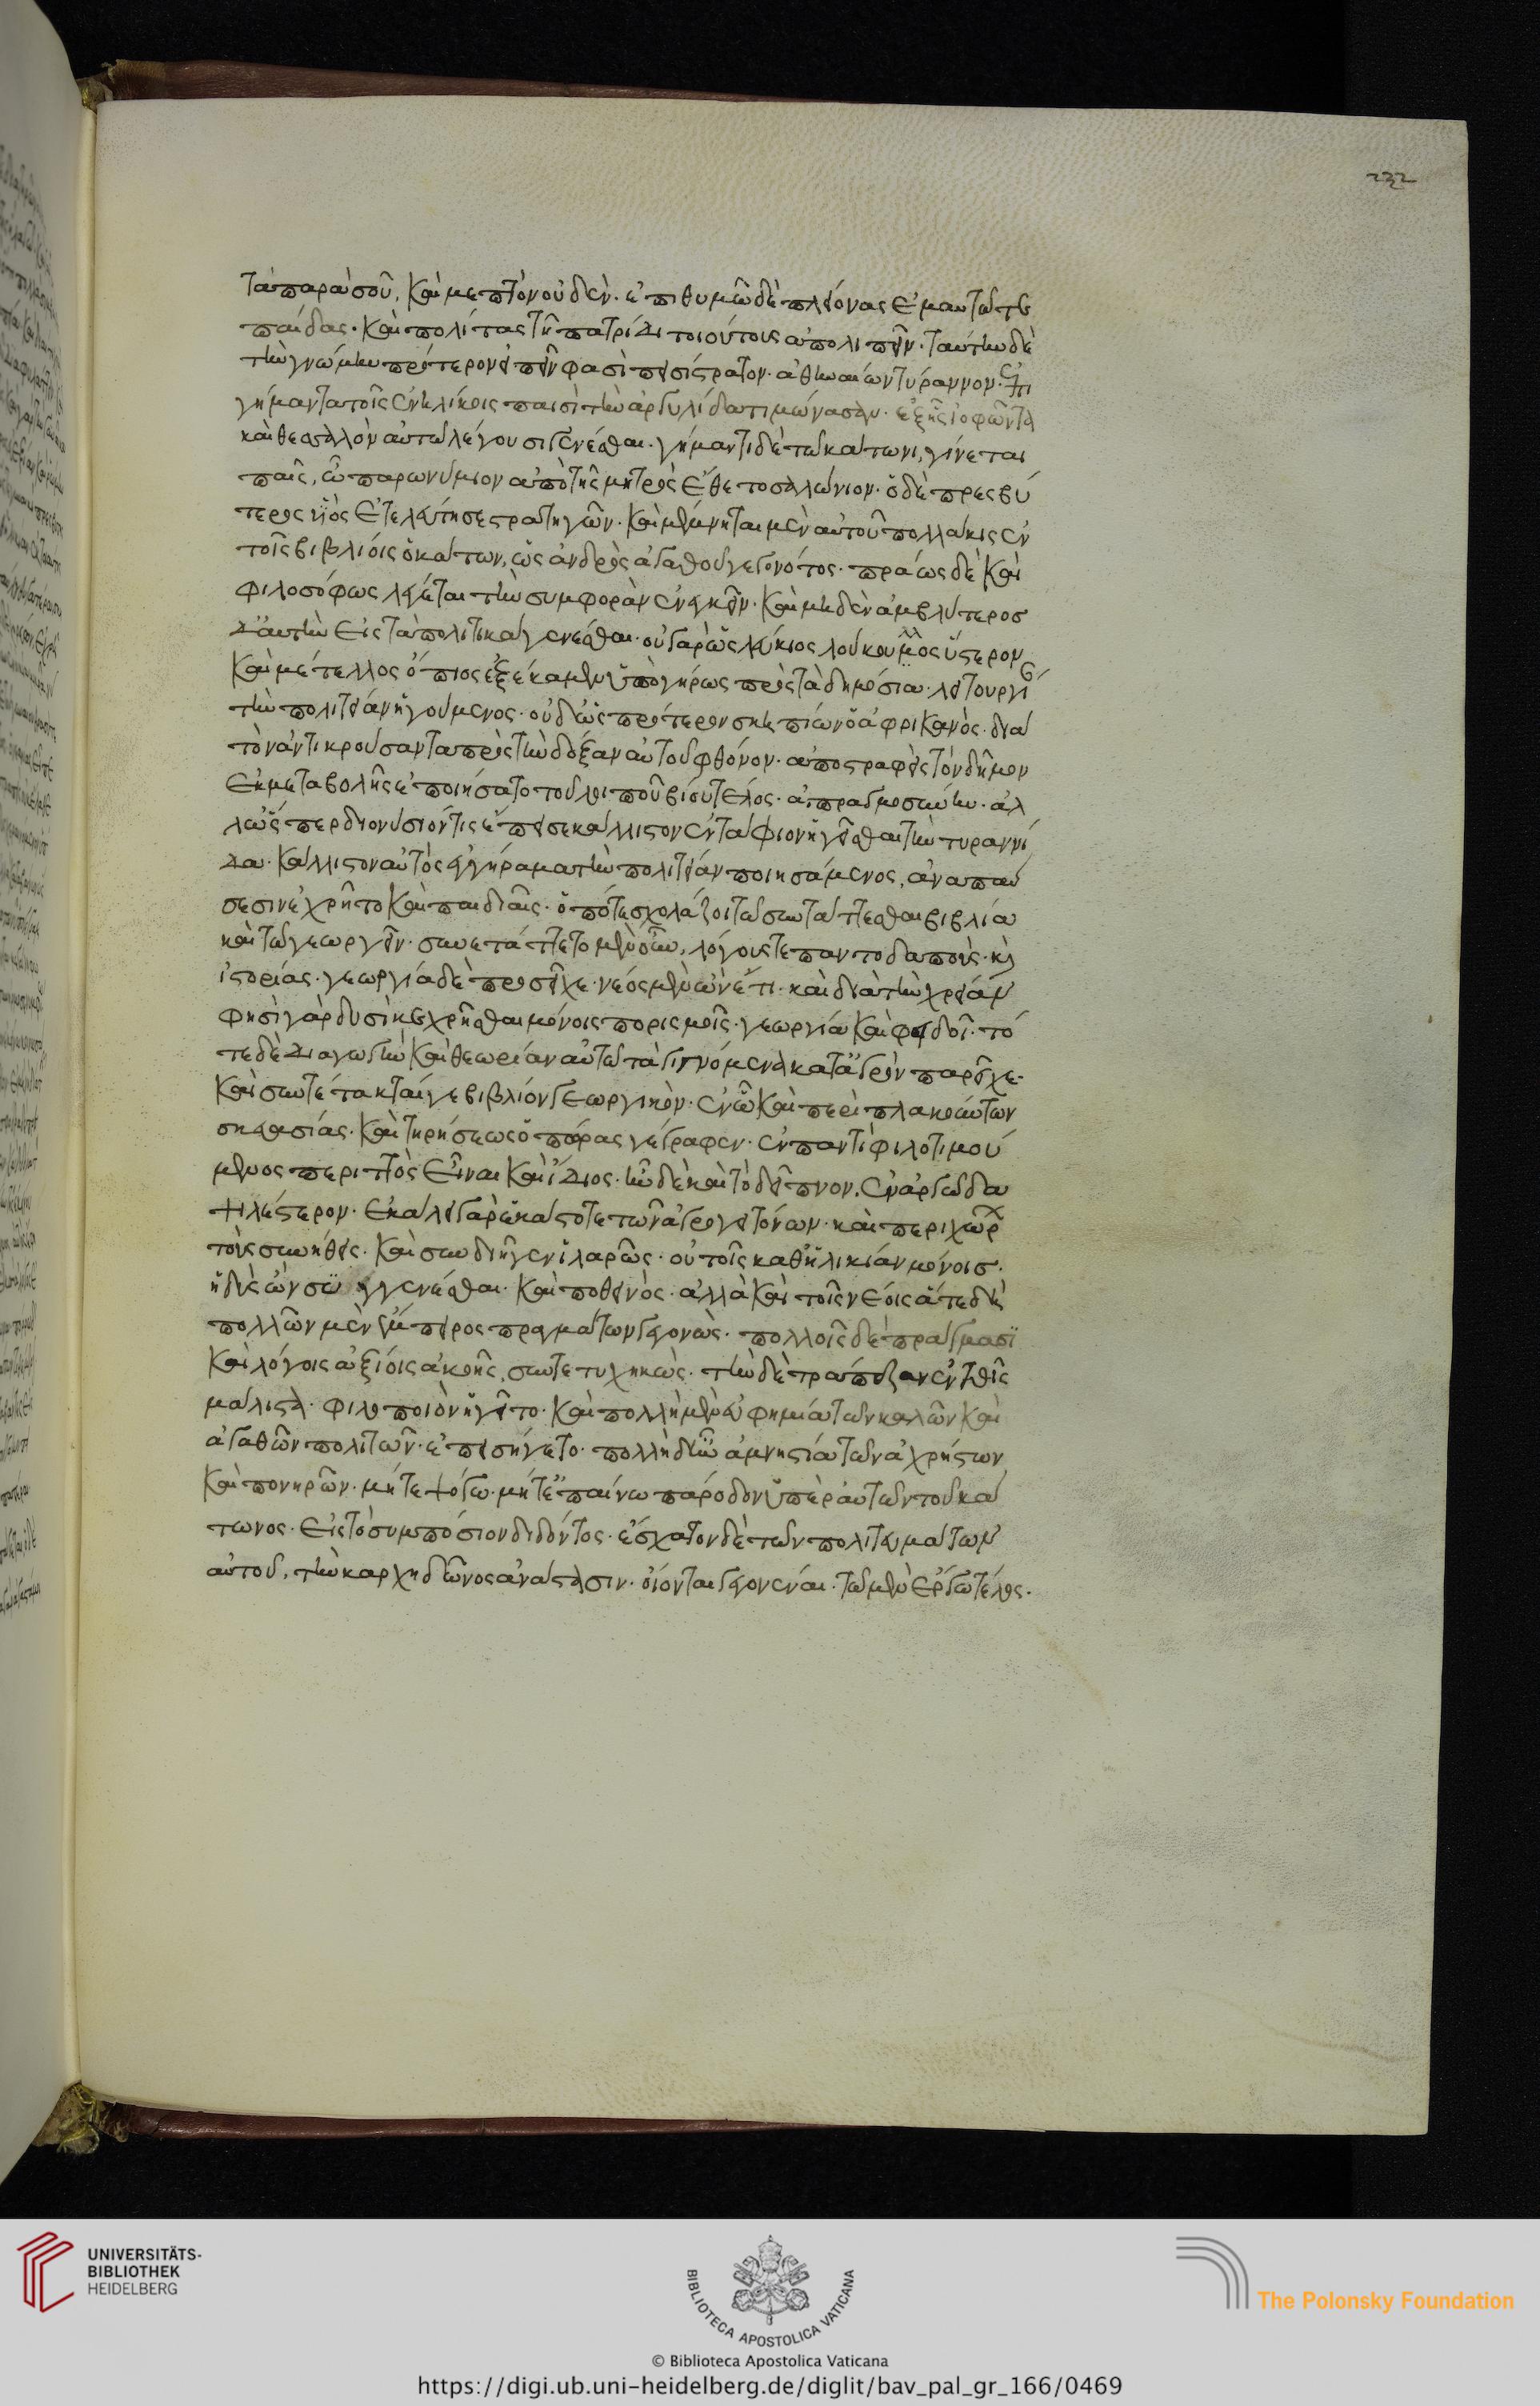 232
τὰ παρὰ σοῦ, καὶ μεπτὸν οὐδέν· ἐπιθυμῶ δὲ πλείονας ἐμαυτῶ τε
παῖδας· καὶ πολίτας τῆ πατρίδι τοιούτους ἀπολιπεῖν· ταύτην δὲ
τὴν γνώμην πρότερον εἰπεῖν φασὶ πεισίστρατον· ἀθηναίων τύραννον· ἐπι
γήμαντα τοῖς ἐνηλίκοις παισὶ τὴν ἀργυλίδα τιμώνασαν· ἐξ ἧς ἰοφῶντα
καὶ θεσαλὸν αὐτῶ λέγουσι γενέσθαι· γήμαντι δὲ τῶ κάτωνι, γίνεται
παῖς, ὧ παρωνύμιον ἀπὸ τῆς μητρὸς ἔθετο σαλώνιον· ὁ δὲ πρεσβύ
τερος υἱὸς ἐτελεύτησε στρατηγῶν· καὶ μέμνηται μὲν αὐτοῦ πολλάκις ἐν
τοῖς βιβλίοις ὁ κάτων, ὡς ἀνδρὸς ἀγαθοῦ γεγονότος· πράως δὲ καὶ
φιλοσόφως λέγεται τὴν συμφορὰν ἐνεγκεῖν· καὶ μηδὲν ἀμβλύτερος
δι' αὐτὴν εἰς τὰ πολιτικὰ γενέσθαι· οὐ γὰρ ὡς λεύκιος λούκουλλος ὕστερον
καὶ μέτελλος ὁ πῖος ἐξέκαμεν ὑπὸ γήρως πρὸς τὰ δημόσια· λειτουργί
τὴν πολιτείαν ἡγούμενος· οὐδ' ὡς πρότερον σκηπίων ὁ ἀφρικανὸς· διὰ
τὸν ἀντικρούσαντα πρὸς τὴν δόξαν αὐτοῦ φθόνον· ἀποστραφεὶς τὸν δῆμον
ἐκ μεταβολῆς ἐποιήσατο τοῦ λοιποῦ βίου τέλος· ἀπραγμοσύνην· ἀλ
λ' ὥσπερ διονύσιόν τις ἔπεισε κάλλιστον ἐντάφιον ἡγεῖσθαι τὴν τυραννί
δα· κάλλιστον αὐτὸς ἐγγήραμα τὴν πολιτείαν ποιησάμενος, ἀναπαύ
σεσιν ἐχρῆτο καὶ παιδιαῖς· ὁπότε σχολάζοι τῶ συντάττεσθαι βιβλία
καὶ τῶ γεωργεῖν· συνετάττετο μὲν οὖν, λόγους τε παντοδαποὺς· κ(αὶ)
ἱστορίας· γεωργία δὲ προσεῖχε· νέος μὲν ὢν ἔτι· καὶ διὰ τὴν χρείαν
φησὶ γὰρ δυσὶ κεχρῆσθαι μόνοις πορισμοῖς· γεωργία καὶ φειδοῖ· τό
τε δὲ διαγωγὴν καὶ θεωρίαν αὐτῶ τὰ γιγνόμενα κατ' ἀγρὸν παρεῖχε·
καὶ συντέτακταί γε βιβλίον γεωργικόν· ἐν ὧ καὶ περὶ πλακούντων
σκευασίας· καὶ τηρήσεως ὀπώρας γέγραφεν· ἐν παντὶ φιλοτιμού
μενος περιττὸς εἶναι καὶ ἴδιος· ἦν δὲ καὶ τὸ δεῖπνον, ἐν ἀργῶ δα
ψιλέστερον· ἐκάλει γὰρ ἑκάστοτε τῶν ἀγρογειτόνων· καὶ περιχώρ
τοὺς συνήθεις· καὶ συνδιῆγεν ἱλαρῶς· οὐ τοῖς καθ' ἡλικίαν μόνοις·
ἡδὺς ὢν συ γγενέσθαι· καὶ ποθεινὸς· ἀλλὰ καὶ τοῖς νέοις ἅτε δὴ
πολλῶν μὲν ἔμπειρος πραγμάτων γεγονώς· πολλοῖς δὲ πράγμασι
καὶ λόγοις ἀξίοις ἀκοῆς, συντετυχηκώς· τὴν δὲ τράπεζαν ἐν τοῖς
μάλιστα· φιλοποιὸν ἡγεῖτο· καὶ πολλὴ μὲν εὐφημία τῶν καλῶν καὶ
ἀγαθῶν πολιτῶν· ἐπεισήγετο· πολλὴ δ' ἦν ἀμνηστία τῶν ἀχρήστων
καὶ πονηρῶν· μήτε ψόγω· μήτ' ἐπαίνω πάροδον ὑπὲρ αὐτῶν τοῦ κά
τωνος· εἰς τὸ συμπόσιον διδόντος· ἔσχατον δὲ τῶν πολιτευμάτων
αὐτοῦ, τὴν καρχηδῶνος ἀνάστασιν· οἴονται γεγονέναι· τῶ μὲν ἔργω τέλος·
UNIVERSITÄTS-
BIBLIOTHEK
HEIDELBERG
BIBLIOTECA APOSTOLICA VATICANA
The Polonsky Foundation
© Biblioteca Apostolica Vaticana
https://digi.ub.uni-heidelberg.de/diglit/bav_pal_gr_166/0469